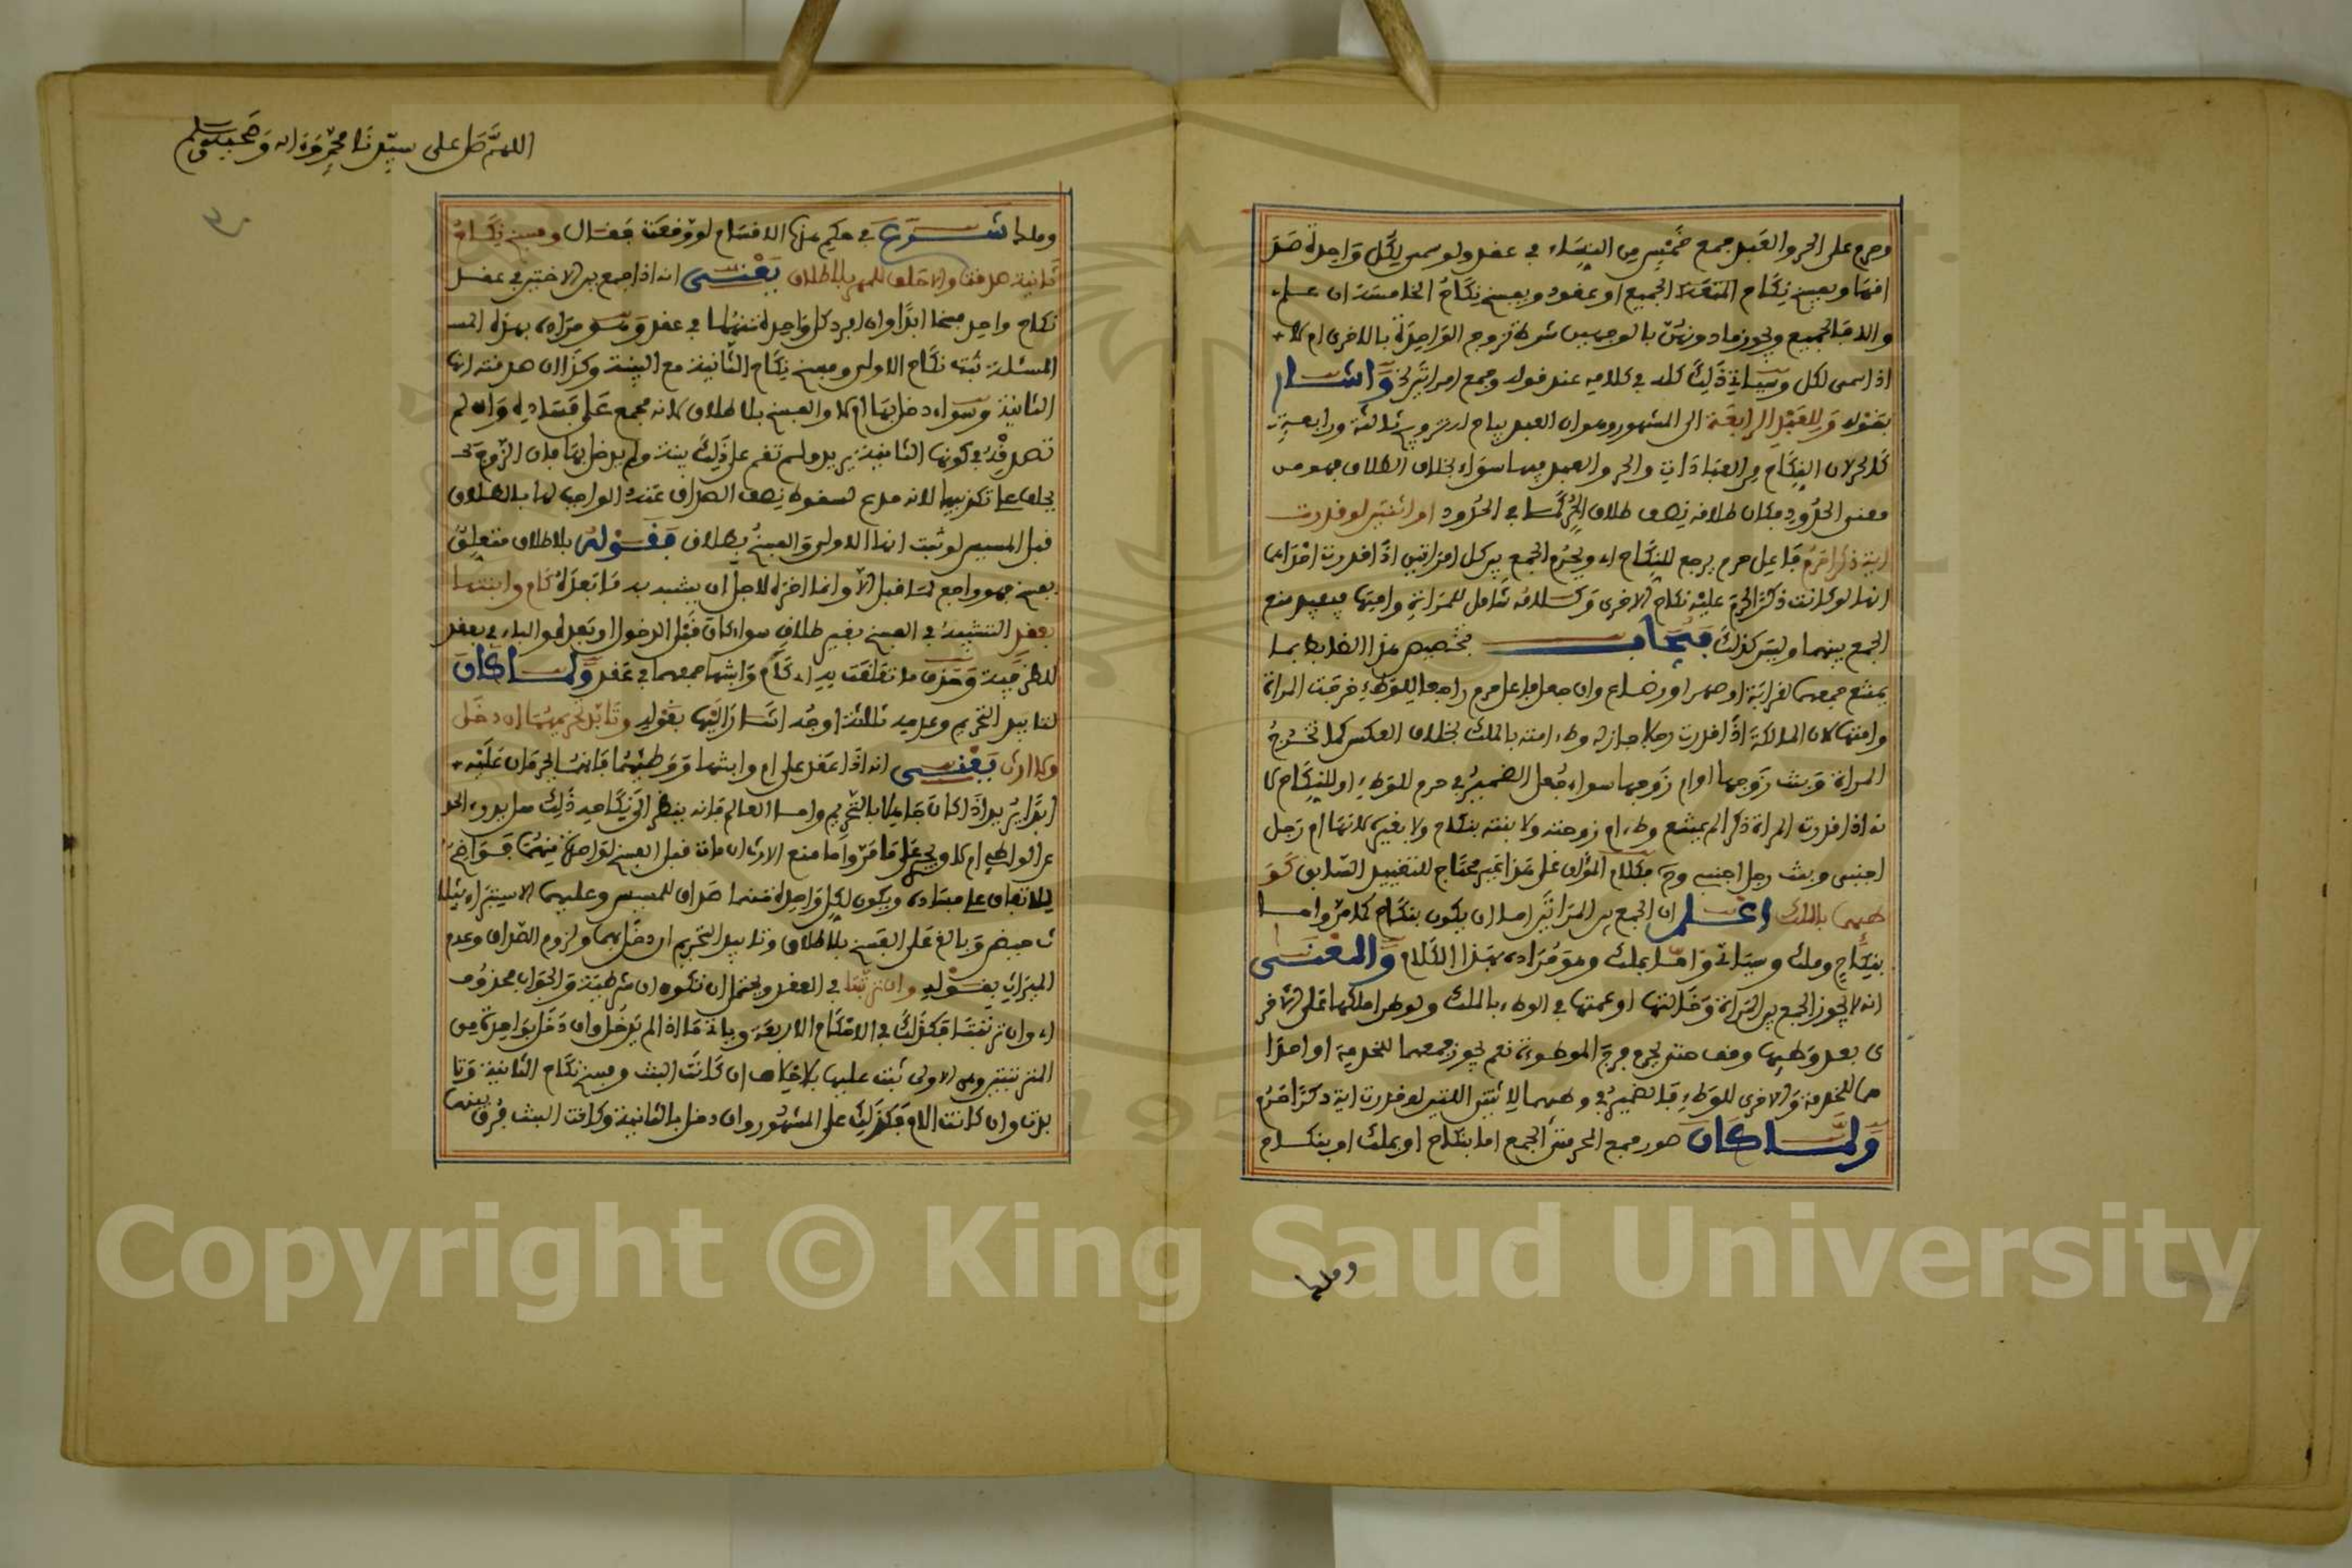 وحرم على الحر والعبد جمع خمس من النساء في عقد ولو سمى لكل واحدة صد
اقها ويفسخ نكاح الجميع او عقود ويفسخ نكاح الخامسة ان علمـ
والا فالجميع ويجوز ما دونهن بالوجهين شرط تزوج الواحدة بالاخرى ام لا
اذا سمى لكل وسياتي ذلك كله في كلامه عند قوله وجمع امراتين الخ واشار
بقوله وللعبد الرابعة الى المشهور وهو ان العبد يباح له تزويج ثالثة ورابعة
كالحر لان النكاح من العبادات والحر والعبد فيها سواء بخلاف الطلاق فهو من
معنى الحدود فكان طلاقه نصف طلاق الحر كما في الحدود او اثنتين لو قدرت
اية ذكرا حرم فاعل حرم يرجع للنكاح اي ويحرم الجمع بين كل امراتين اذا قدرت احداهما
انها لو كانت ذكرا حرم عليه نكاح الاخرى وكلامه شامل للمراة وامتها فيفيد منع
الجمع بينهما وليس كذلك فيجاب بتخصيص هذا الضابط بما
يمتنع جمعهما لقرابة او صهر او رضاع وان جعل فاعل حرم راجعا للوطء خرجت المراة
وامتها لان المالكة اذا قدرت رجلا جاز له وطء امته بالملك بخلاف العكس كما تخرج
المراة وبنت زوجها او ام زوجها سواء جعل الضمير في حرم للوطء او للنكاح لا
نه اذا قدرت المراة ذكرا لم يمتنع وطء ام زوجته ولا بنته بنكاح ولا بغيره لانها ام رجل
اجنبي وبنت رجل اجنبي وح فكلام المؤلف على هذا غير محتاج للتقييد السابق كو
طئهما بالملك اعلم ان الجمع بين المراتين اما ان يكون بنكاح كما مر واما
بنكاح وملك وسياتي واما بملك وهو مراده بهذا الكلام والمعنى
انه لا يجوز الجمع بين المراة وخالتها او عمتها في الوطء بالملك ولو طرا ملكها على الاخر
ى بعد وطئها وقف حتى يحرم فرج الموطوءة نعم يجوز جمعهما للخدمة او احدا
هما للخدمة والاخرى للوطء فالضمير في وطئهما للاثنتين اللتين لو قدرت اية ذكرا حرم
ولما كان صور جمع المحرمتي الجمع اما بنكاح او بملك او بنكاح
وملك
اللهم صل على سيدنا محمد وءاله وصحبه وسلم
٣٠
وملك شرع في حكم هذه الاقسام لو وقعت فقال وفسخ نكاح
ثانية صدقت والا حلف للمهر بلا طلاق يعني انه اذا جمع بين الاختين في عقد
نكاح واحد فسخا ابدا وان افرد كل واحدة منهما في عقد وهو مراده بهذه المسـ
المسئلة ثبت نكاح الاولى وفسخ نكاح الثانية مع البينة وكذا ان صدقته انها
الثانية وسواء دخل بها ام لا والفسخ بلا طلاق لانه مجمع على فساده وان لم
تصدقه في كونها الثانية يريد ولم تقم على ذلك بينة ولم يدخل بها فان الزوج
يحلف على تكذيبها لانه مدع لسقوط نصف الصداق عنه الواجب لها بالطلاق
قبل المسيس لو ثبت انها الاولى والفسخ بطلاق فقوله بلا طلاق متعلق
بفسخ فهو راجع لما قبل الا وانما اخره لاجل ان يشبه به ما بعده كام وابنتها
بعقد التشبيه في الفسخ بغير طلاق سواء كان قبل الدخول او بعده والباء في بعقد
للظرفية وحذف ما تعلقت به اي كام وابنتها جمعهما في عقد ولما كان
لتابيد التحريم وعدمه ثلاثة اوجه اشار اليها بقوله وتابد تحريمهما ان دخل
ولا ارث يعني انه اذا عقد على ام وابنتها ووطئهما فانهما يحرمان عليه
ابدا يريد اذا كان جاهلا بالتحريم واما العالم فانه ينظر الى نكاحه ذلك هل يدرء الحد
عن الواطئ ام لا ويجري على ما مر واما منع الارث ان مات قبل الفسخ لواحدة منهما فواضح
للاتفاق على فساده ويكون لكل واحدة منهما صداق للمسيس وعليهما الاستبراء بثلا
ث حيض وبالغ على الفسخ بلا طلاق وتابيد التحريم ان دخل بهما ولزوم الصداق وعدم
الميراث بقوله وان ترتبتا في العقد ويحتمل ان تكون ان شرطية والجواب محذوف
اي وان ترتبتا فكذلك في الاحكام الاربعة وياتي ما اذا لم يدخل وان دخل بواحدة من
المترتبتين وهي الاولى ثبت عليها بلا خلاف ان كانت البنت وفسخ نكاح الثانية وتا
بدت وان كانت الام فكذلك على المشهور وان دخل بالثانية وكانت البنت فرق بينهما
Copyright © King Saud University